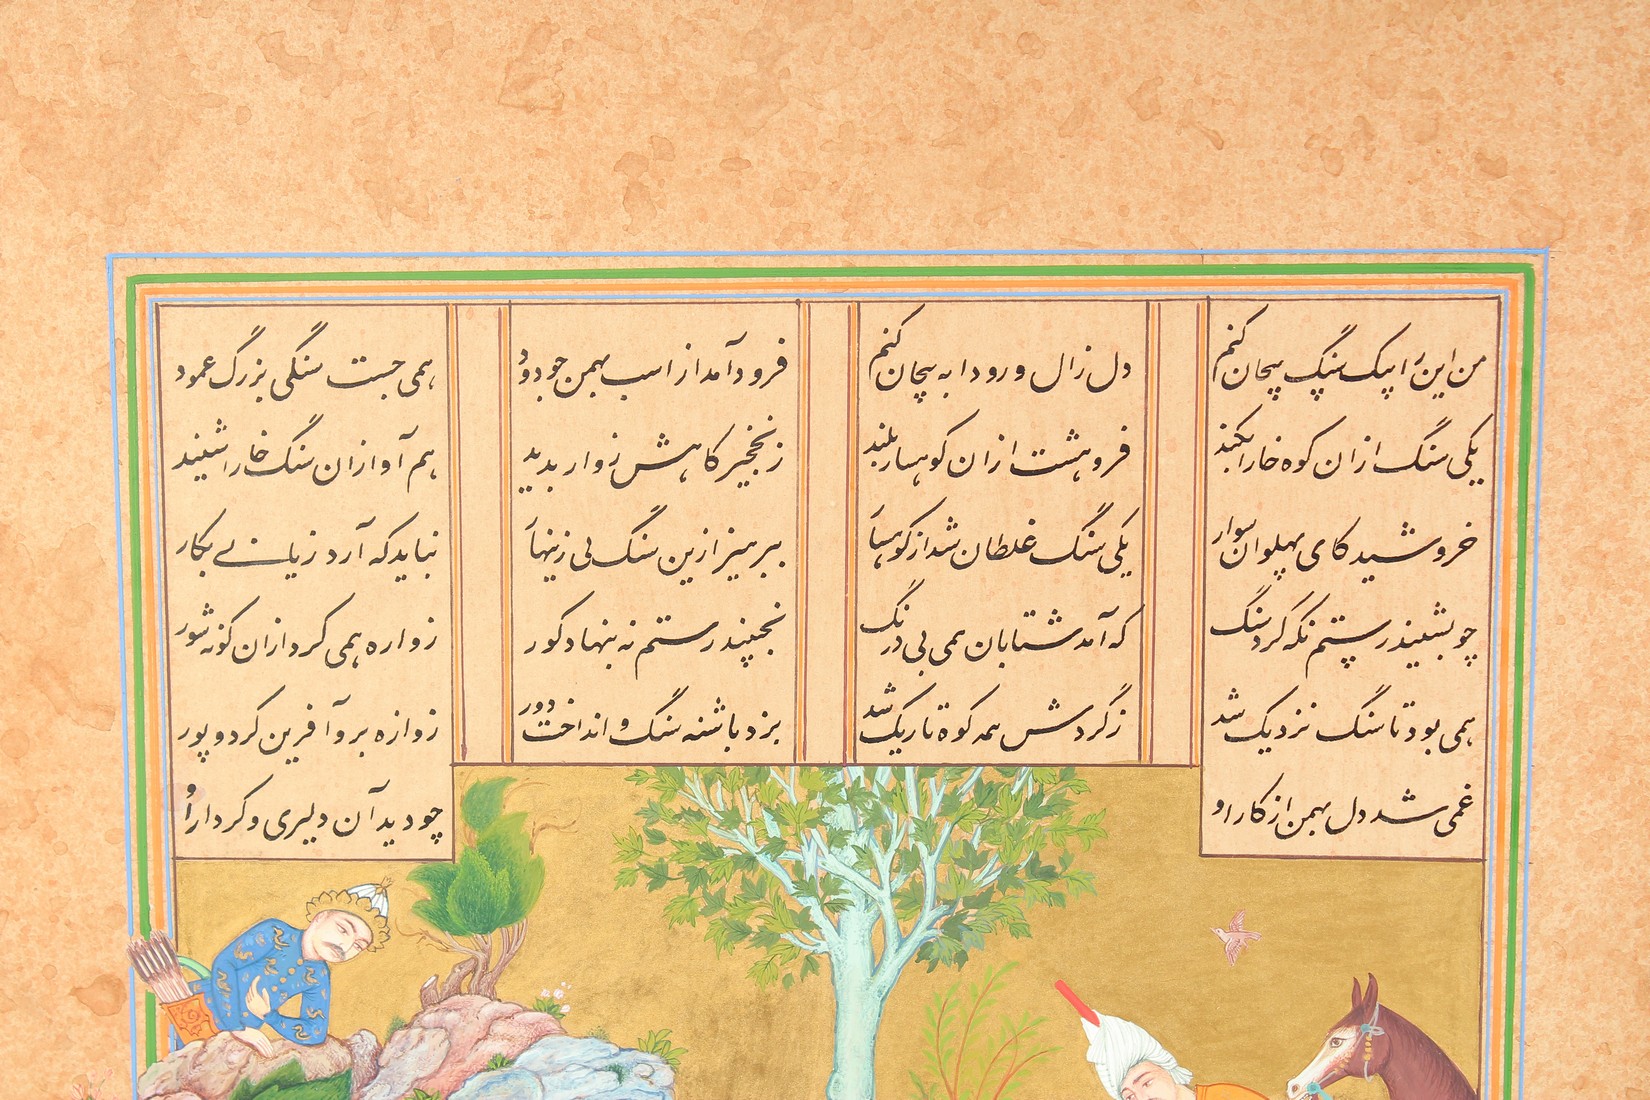 من این را بیک سنگ بیجان کنم
دل زال و رودابه پیچان کنم
فرود آمد از اسب بهمن چو دود
همی جست سنگی بزرگ عمود
یکی سنگ ازان کوه خارا بکند
فروهشت ازان کوهسار بلند
ز نخجیر کاهش زوار بدید
هم آواز ان سنگ خارا شنید
خروشید کای پهلوان سوار
یکی سنگ غلطان شد از کوهسا
بپرهیز ازین سنگ بی زینها
نباید که آرد زیانی بکار
چو بشنید رستم نگه کرد سنگ
که آمد شتابان همی بی درنگ
نجنبید رستم نه بنهاد گور
زواره همی کرد ازان گونه شور
همی بود تا سنگ نزدیک شد
ز گردش همه کوه تاریک شد
بزد پاشنه سنگ و انداخت دور
زوازه برو آفرین کرد و پور
غمی شد دل بهمن از کار او
چو دید آن دلیری و کردار او